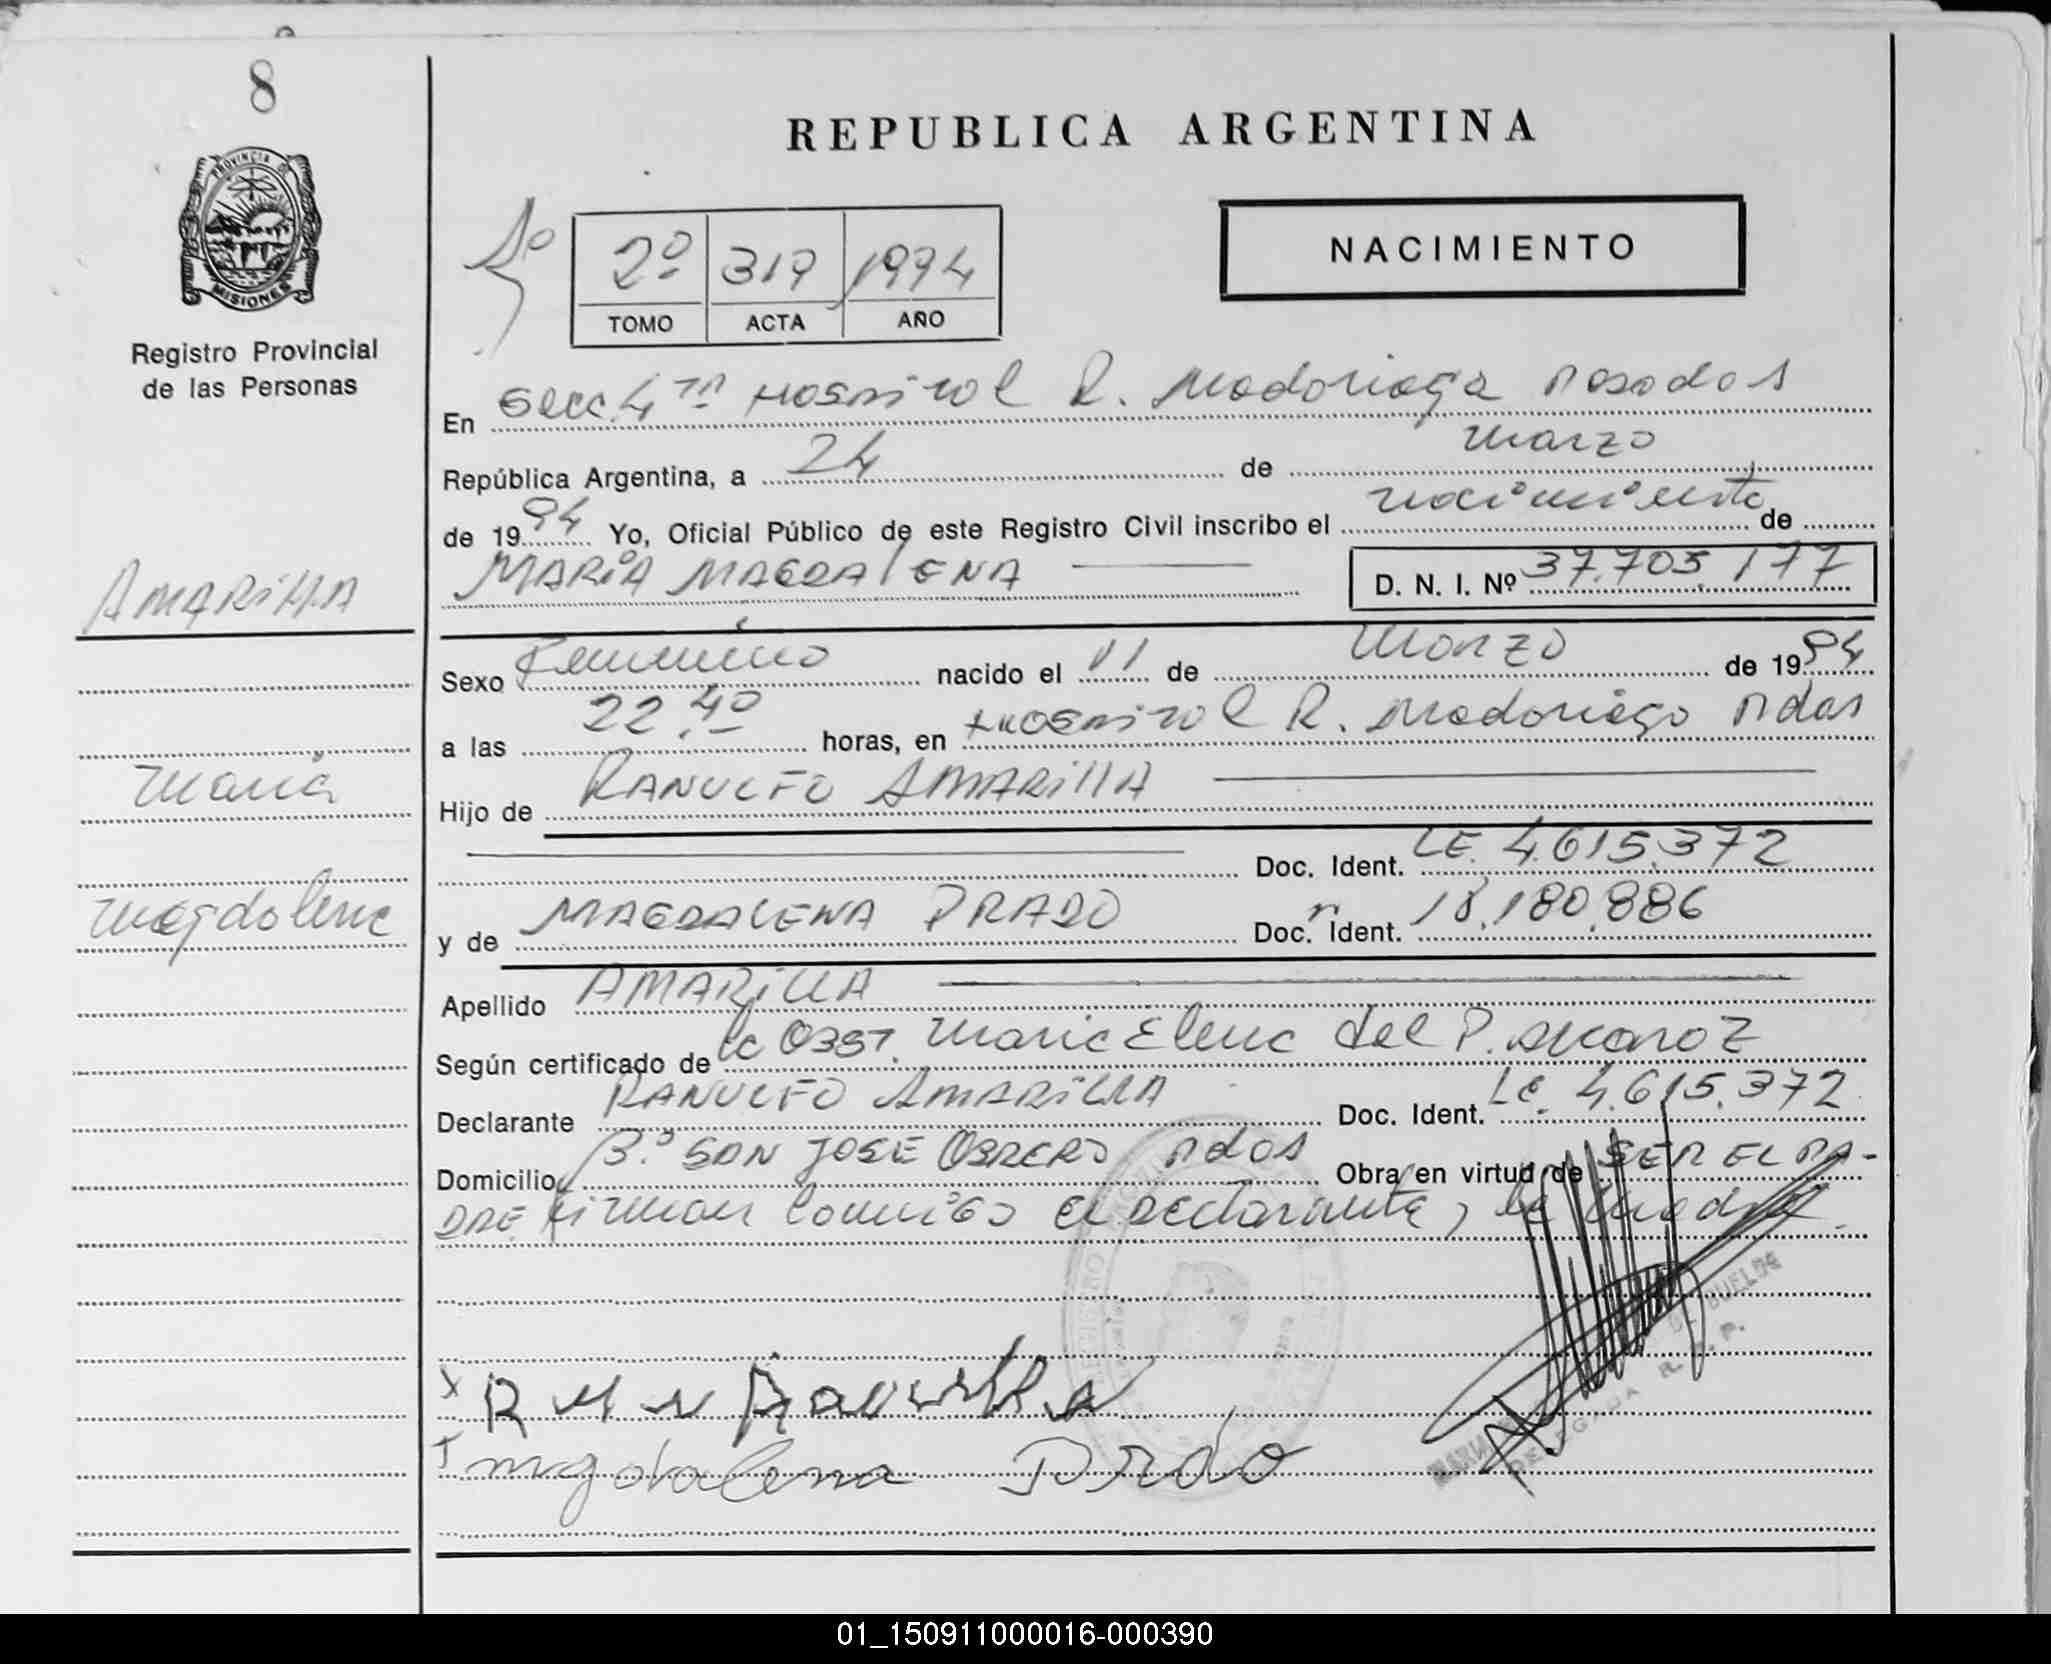 8
PROVINCIA DE
MISIONES
Registro Provincial
de las Personas
REPUBLICA ARGENTINA
2º 319 1994
TOMO ACTA AÑO
NACIMIENTO
En Secc. 4ta Hospital R. Madariaga Posadas
República Argentina, a 24 de Marzo
de 1994 Yo, Oficial Público de este Registro Civil inscribo el nacimiento de
MARIA MAGDALENA D. N. I. Nº 37.705.177
AMARILLA
Maria
Magdalena
Sexo Femenino nacido el 11 de Marzo de 1994
a las 22,40 horas, en Hospital R. Madariaga Pdas
Hijo de RANULFO AMARILLA
Doc. Ident. LE. 4.615.372
y de MAGDALENA PRADO Doc. Ident. 18.180.886
Apellido AMARILLA
Según certificado de la Obst. Maria Elena del P. Alcaraz
Declarante RANULFO AMARILLA Doc. Ident. LE. 4.615.372
Domicilio Bº SAN JOSE OBRERO Pdas Obra en virtud de SER EL PA-
DRE firman conmigo el declarante, la madre.
x R Amarilla
Magdalena Prdo
DELEGADA R. P. P.
01_150911000016-000390